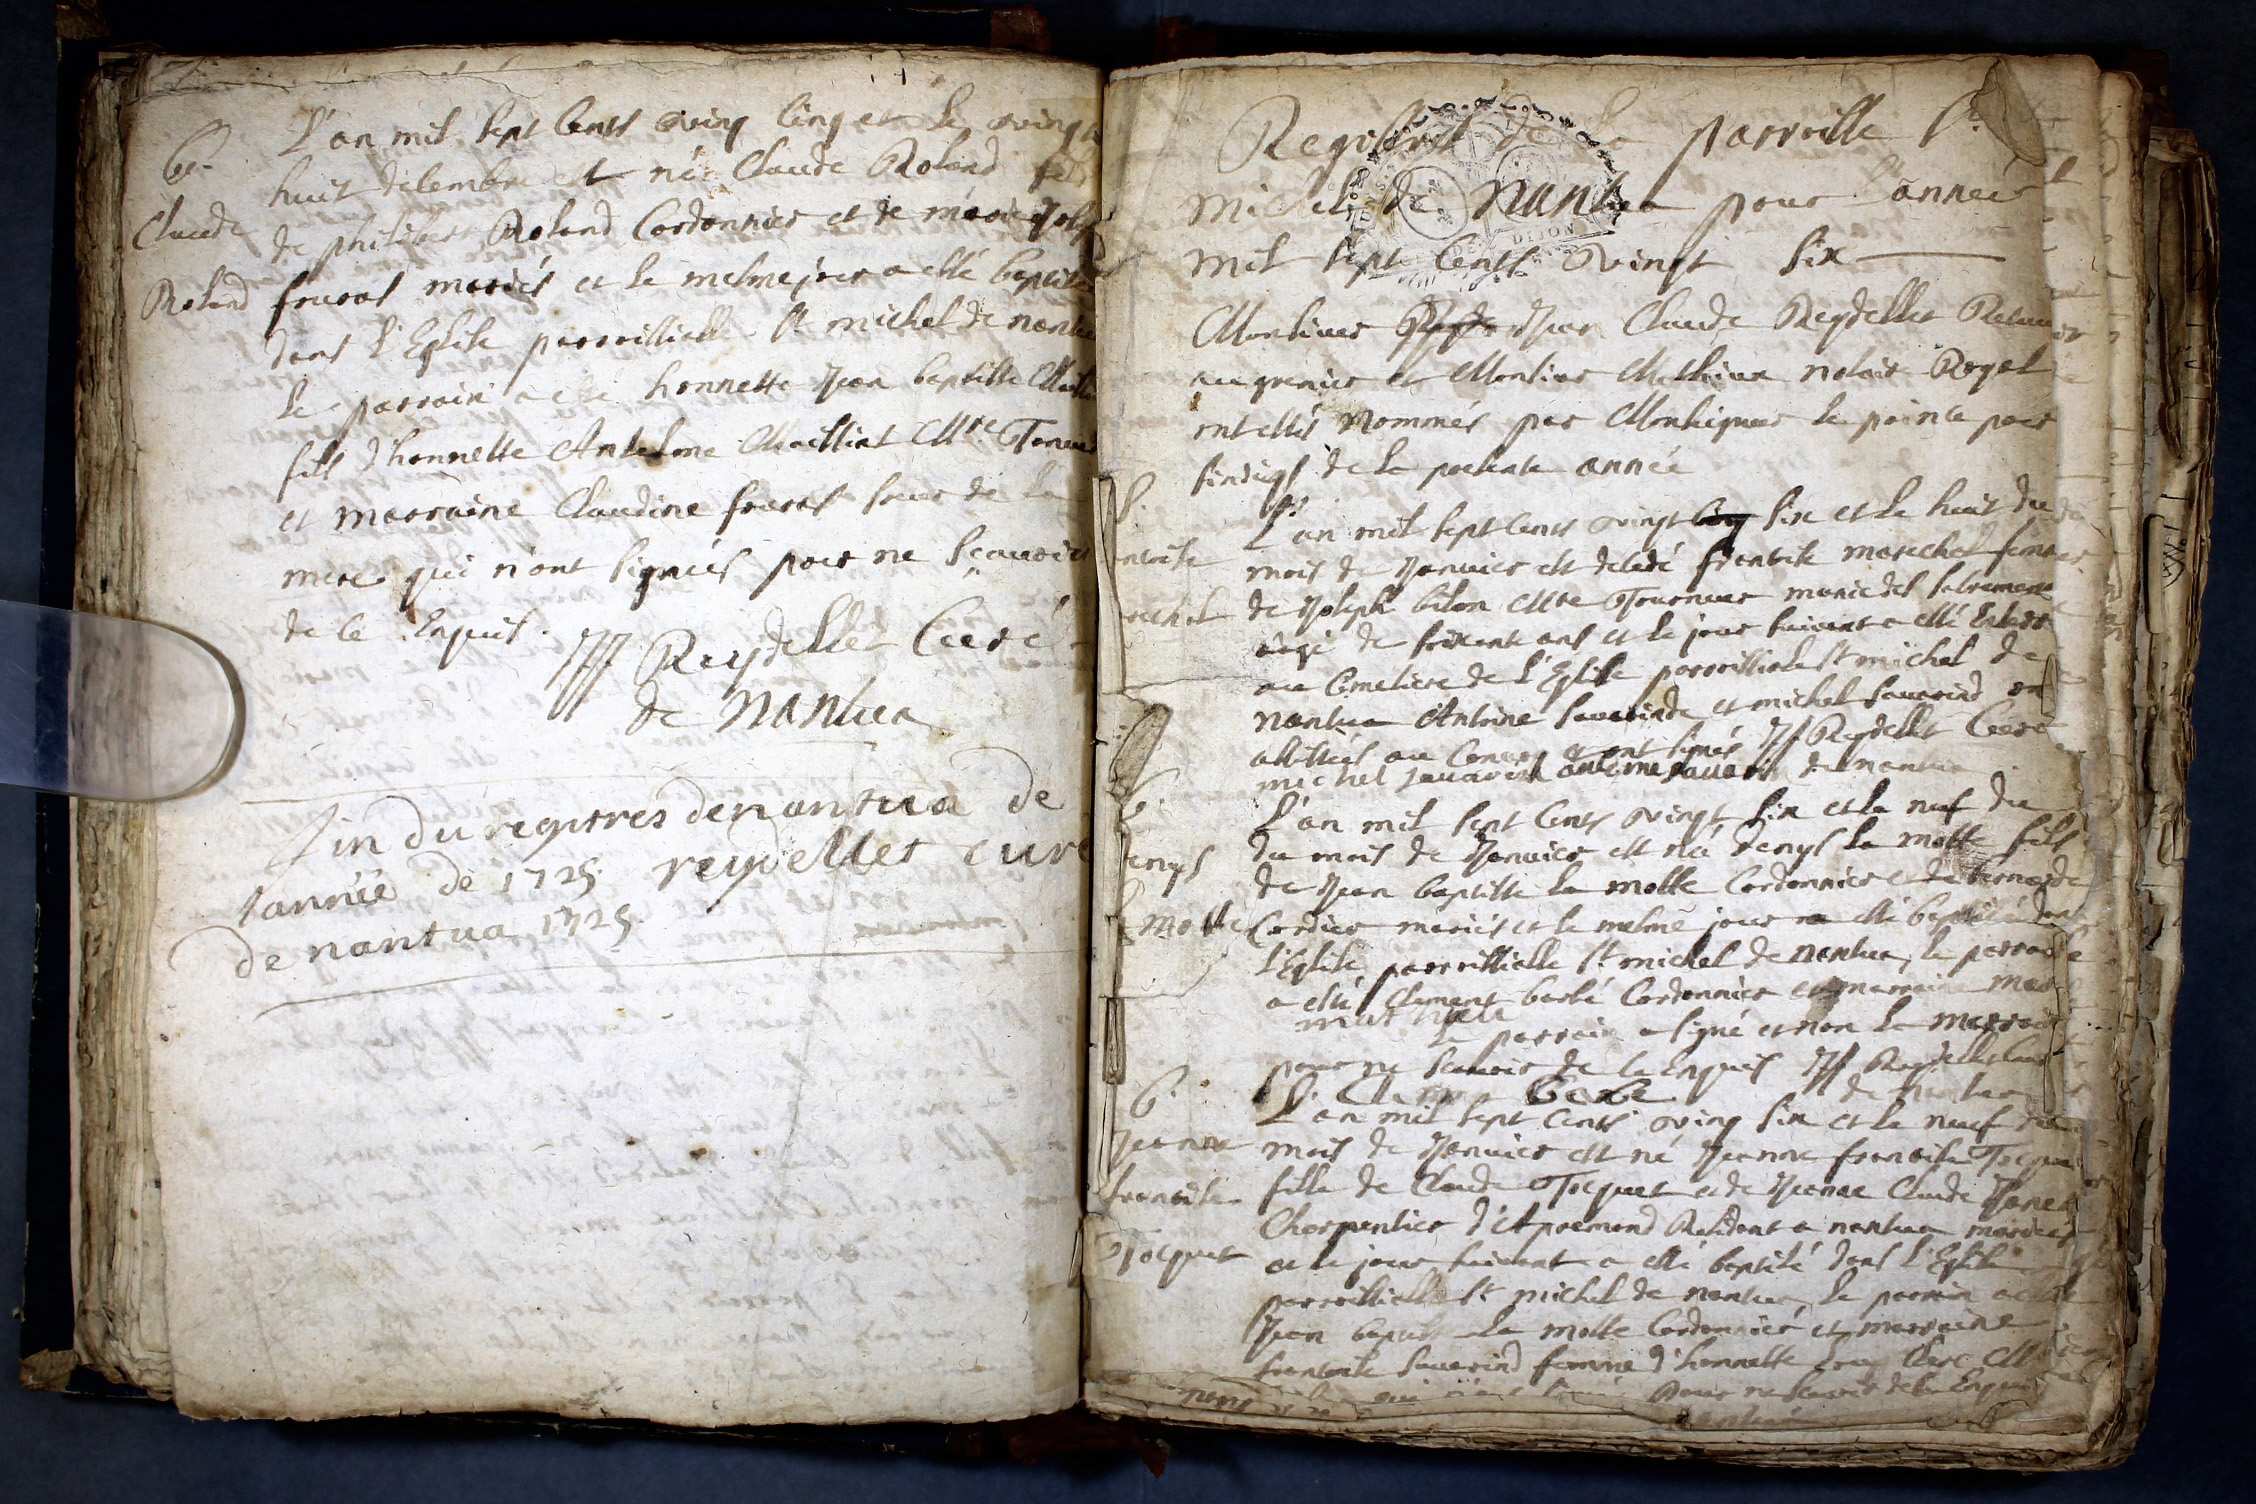 L'an mil sept Cents vving Cinq et le vving
b. huit decembre est né Claude Roland fils
Claude de philibert Roland Cordonnier et de marie
Roland mariés et le mesme jour a esté baptisé
dans l'Eglise parroissialle St michel de nantua
le parrain a esté honneste Jean baptiste
fils d'honneste Anthelme Mailliat Mre
et marraine Claudine soeur de la
mere qui n'ont signés pour ne sçauoir
de ce Enquis.
Reydellet Curé
de Nantua
fin du registres de nantua de
l'année de 1725 reydellet curé
de nantua 1725
Registre de la parroisse St
michel de Nantua pour l'année
mil sept Cents vvingt six
Monsieur Jean Claude Reydellet Receveur
au grenier et Monsieur Mathieux notaire Royal
ont estés Nommés par Monsigneur le prince pour
sindiqs de la presente année
S. L'an mil sept Cents vvingt six et le huit du
mois de Janvier est decedé francoise marechal femme
de Joseph bilon Mre Tourneur munie des sacrements
âgé de soixent ans et le jour suivant a esté Enterré
au Cemetiere de l'Eglise parroissiale St michel de
nantua Antoine Savarind et michel Savarind ont
assistés au Convoy et ont signés Reydellet Curé
michel savarin antoine savarin de nantua
b. L'an mil sept Cents vvingt six et le neuf du
denys du mois de Janvier est né denys la motte fils
de Jean baptiste la motte Cordonnier et de bernarde
motte Cordier mariés et le mesme jour a esté baptisé dans
l'Eglise parroissialle St michel de nantua, le parrain
a esté Clement barbé Cordonnier et marraine
le parrain a signé et non la marraine
pour ne scavoir de ce Enquis Reydellet Curé
de nantua
b. L'an mil sept Cents vving six et le neuf du
Jeanne mois de Janvier est né Jeanne francoise Tocquet
francoise fille de Claude Tocquet et de Jeanne Claude
Charpentier d'Apremond Resident a nantua mariés
Tocquet et le jour suivant a esté baptisé dans l'Eglise
parroissialle St michel de nantua, le parrain a esté
Jean baptiste la motte Cordonnier et marraine
francoise Savarind femme d'honneste
qui n'ont signé pour ne scavoir de ce Enquis